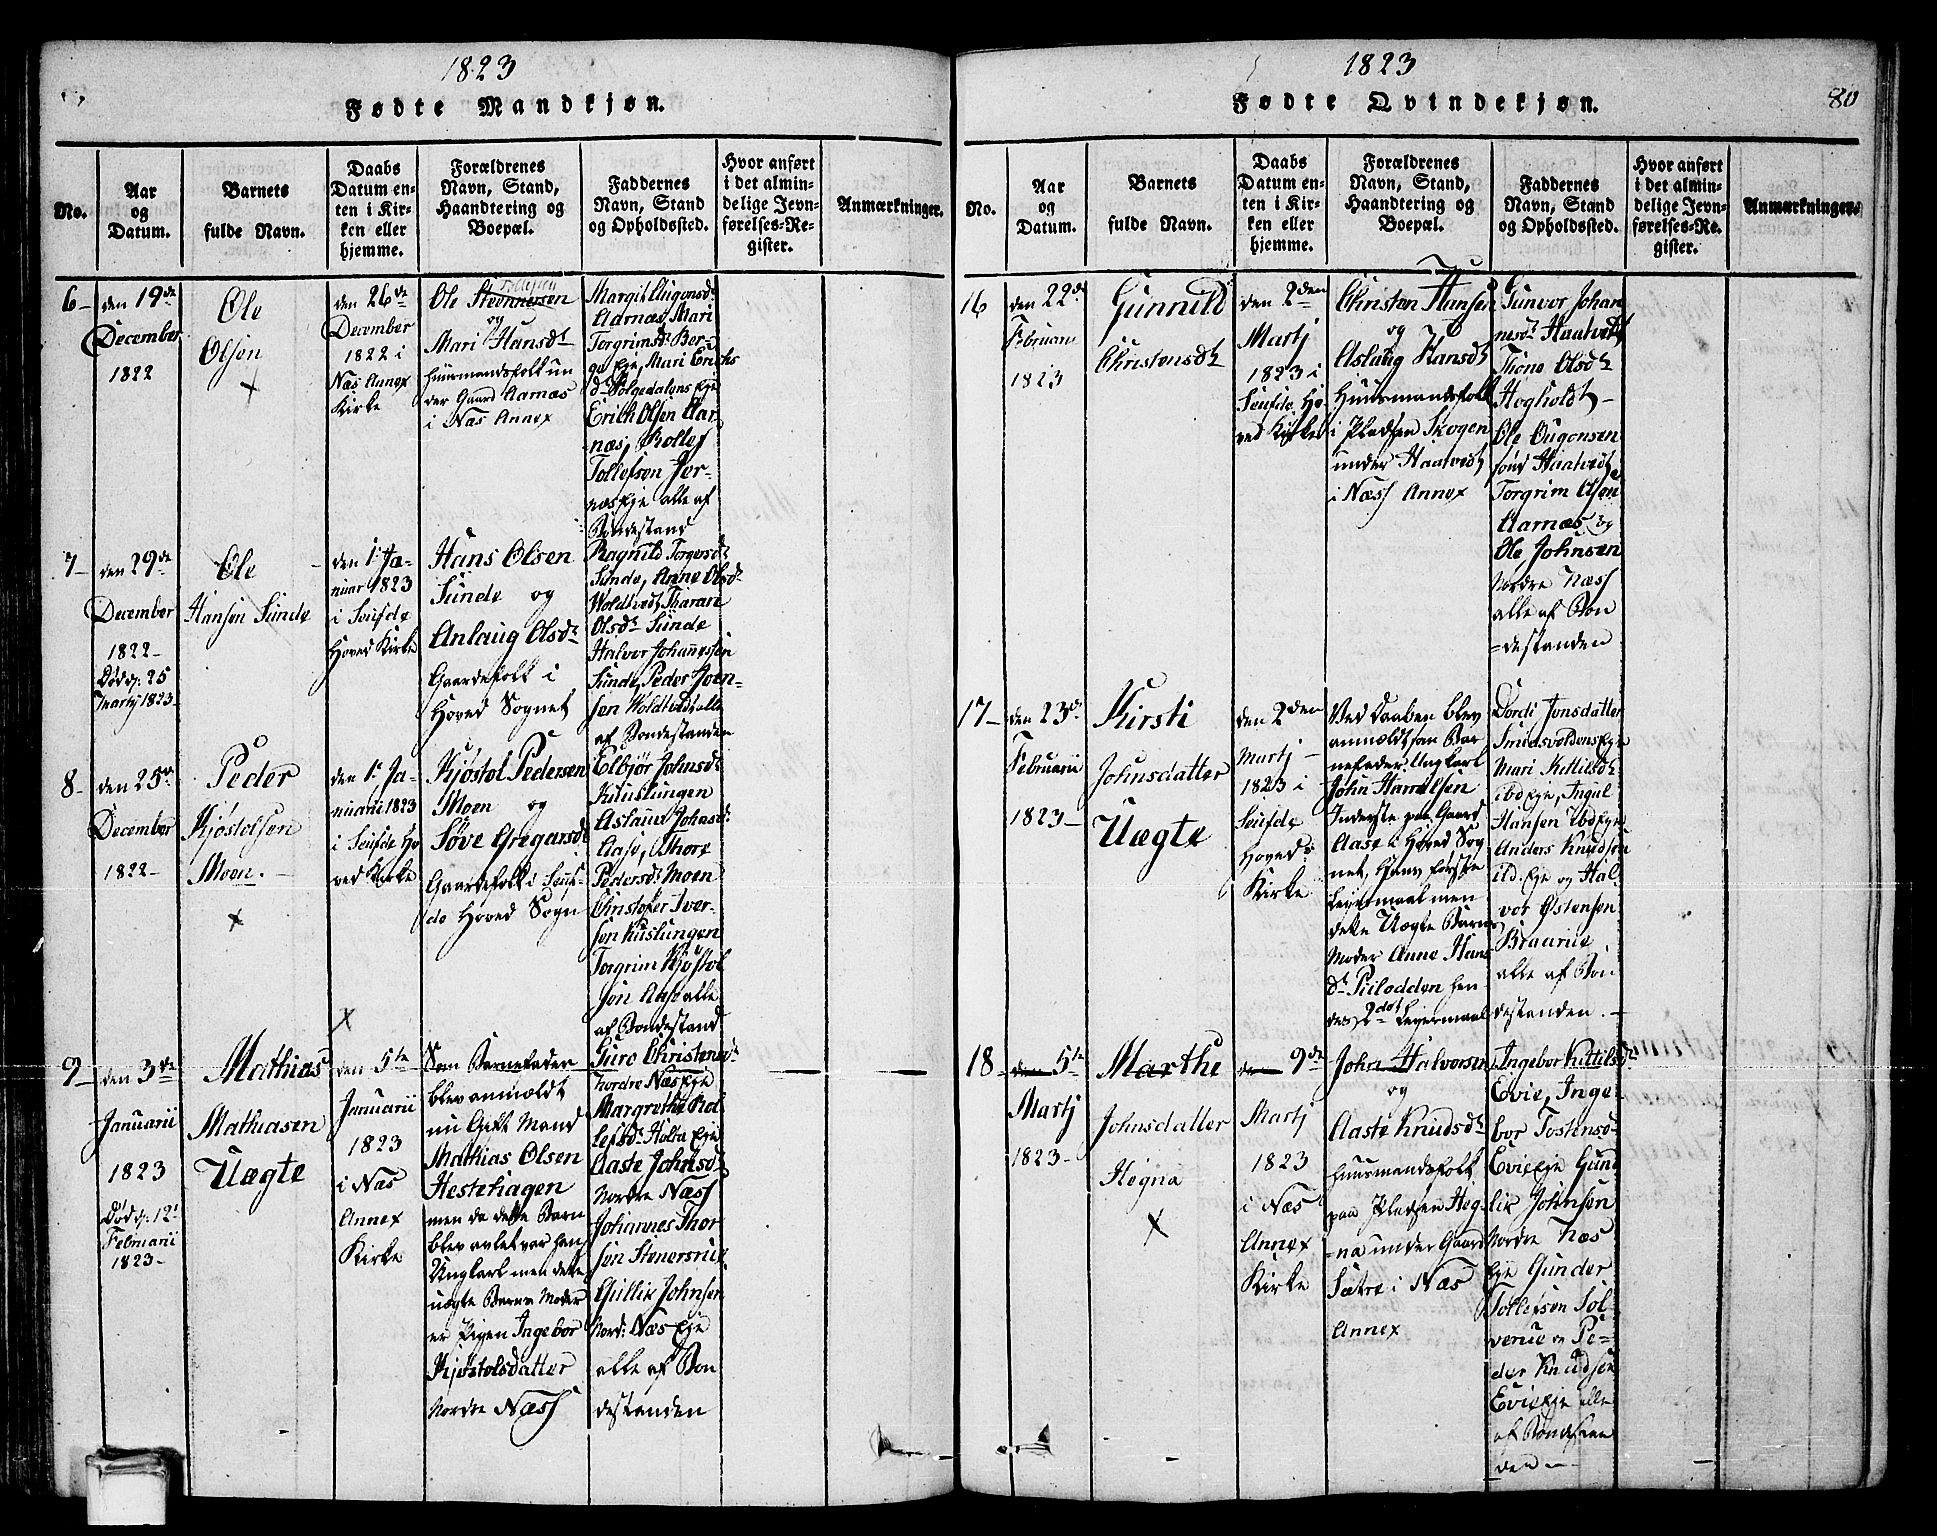 1823
Fødte Mandkjøn.
No.
Aar
og
Datum.
Barnets
fulde Navn.
Daabs
Datum en-
ten i Kir-
ken eller
hjemme.
Forældrenes
Navn, Stand,
Haandtering og
Boepæl.
Faddernes
Navn, Stand
og Opholdssted.
Hvor anført
i det almin-
delige Jevn-
førelses-Re-
gister.
Anmærkninger.
6-
den 19de
December
1822
Ole
Olsen
+
den 26de
December
1822 i
Næs Annex
Kirke
Ole Stennersen
Tollefsen
og
Mari Hansdt
Huusmandsfolk un
der Gaard Aarnæs
i Næs Annex
Margit Augonsdt
Aarnæs, Mari
Torgrimsdt Ber-
ge Eje, Mari Erichs
dt Bolgedalens Eje
Erich Olsen Aar
næs, Rollef
Tollefsen Jer-
næs Eje alle af
Bondestand
7-
den 29de
December
1822-
Død p. 25
Martij 1823
Ole
Hansen Sunde
den 1te Ja-
nuar 1823
i Seufde
Hoved Kirke
Hans Olsen
Sunde og
Anlaug Olsdt
Gaardefolk i
Hoved Sognet
Ragnild Torgersdt
Sunde, Anne Olsdt
Woldtvedt, Tharan
Olsdt Sunde
Halvor Johannessen
Sunde, Peder Joen-
sen Woldtvedt alle
af Bondestanden
8-
den 25de
December
1822-
Peder
Kjøstelsen
Moen.-
+
den 1te Ja-
nuarii 1823
i Seufde Ho
ved Kirke
Kjøstol Pedersen
Moen og
Søve Gregarsdt
Gaardefolk i Seuf-
de Hoved Sogn
Elbjør Johnsdt
Kuuslungen
Aslaug Johnsdt
Aase, Thore
Pedersdt Moen
Christofer Iver-
sen Kuslungen
Torgrim Kjøstol
sen Aase alle
af Bondestand
9-
den 3de
Januarii
1823
Død p. 12te
Februarii
1823-
Mathias
Mathiasen
Uægte
X
den 5te
Januarii
1823
i Næs
Annex
Kirke
Som Barnefader
blev anmeldt
nu Gift Mand
Mathias Olsen
Hestehagen
men da dette Barn
blev avlet var han
Ungkarl men dette
uægte Barns Moder
er Pigen Ingebor
Kjøstolsdatter
Nordre Næss
Guro Christensdt
Nordre Næs Eje
Margrethe Rol
lefsdt Holta Eje
Aaste Johnsdt
Nordre Næss
Johannes Thor
sen Stenersrue
Gullik Johnsen
Nord: Næs Eje
alle af Bon
destanden
1823
80
Fødte Qvindekjøn.
No.
Aar
og
Datum.
Barnets
fulde Navn.
Daabs
Datum en-
ten i Kir-
ken eller
hjemme.
Forældrenes
Navn, Stand,
Haandtering og
Boepæl.
Faddernes
Navn, Stand
og Opholdssted.
Hvor anført
i det almin-
delige Jevn-
førelses-Re-
gister.
Anmærkninger.
16
den 22de
Februarii
1823
Gunnild
Christensdt
den 2den
Martj
1823 i
Seufde Ho
ved Kirke
Christen Hansen
og
Aslaug Hansdt
Huusmandsfolk
i Pladsen Skogen
under Haatvedt
i Næss Annex
Gunvor Johan
nesdt Haatvedt
Thone Olsdt
Høgholdt-
Ole Ougonsen
Haatvedt
Torgrim Olsen
Aarnæs og
Ole Johnsen
Nordre Næss
alle af Bon
=destanden
17-
den 23de
Februarii
1823-
Kirsti
Johnsdatter
Uægte
den 2den
Martj-
1823 i
Seufde
Hoved
Kirke
Ved Daaben blev
anmeldt som Bar
nefader Ungkarl
John Haraldsen
Inderste paa Gaard
Aase i Hoved Sog
net, Hans første
Leiermaal men
dette Uægte Barns
Moder Anne Hans
dt Piilodden hen
des 2det Leiermaal
Dordi Jonsdatter
Smedsvoldens Eje
Mari Kittilsdt
ibd Eje, Ingul
Hansen Ibd Eje
Anders Knudsen
ibd. Eje og Hal-
vor Østensen
Braarue
alle af Bon
destanden.-
18-
den 5te
Martj
1823-
Marthe
Johnsdatter
Høgna
X
den 9de
Martj
1823
i Næs
Annex
Kirke
John Halvorsen
og
Aaste Knudsdt
Huusmandsfolk
paa Pladsen Høg-
=na under Gaard
Sætre i Næs
Annex
Ingebor Kittilsdt
Evie, Inge-
bor Tostensdt
Evie Eje Gun
lik Johnsen
Nordre Næs
Eje Gunder
Tollefsen Sol-
verue og Pe-
der Knudsen
Evie Eje alle
af Bondestan
den-